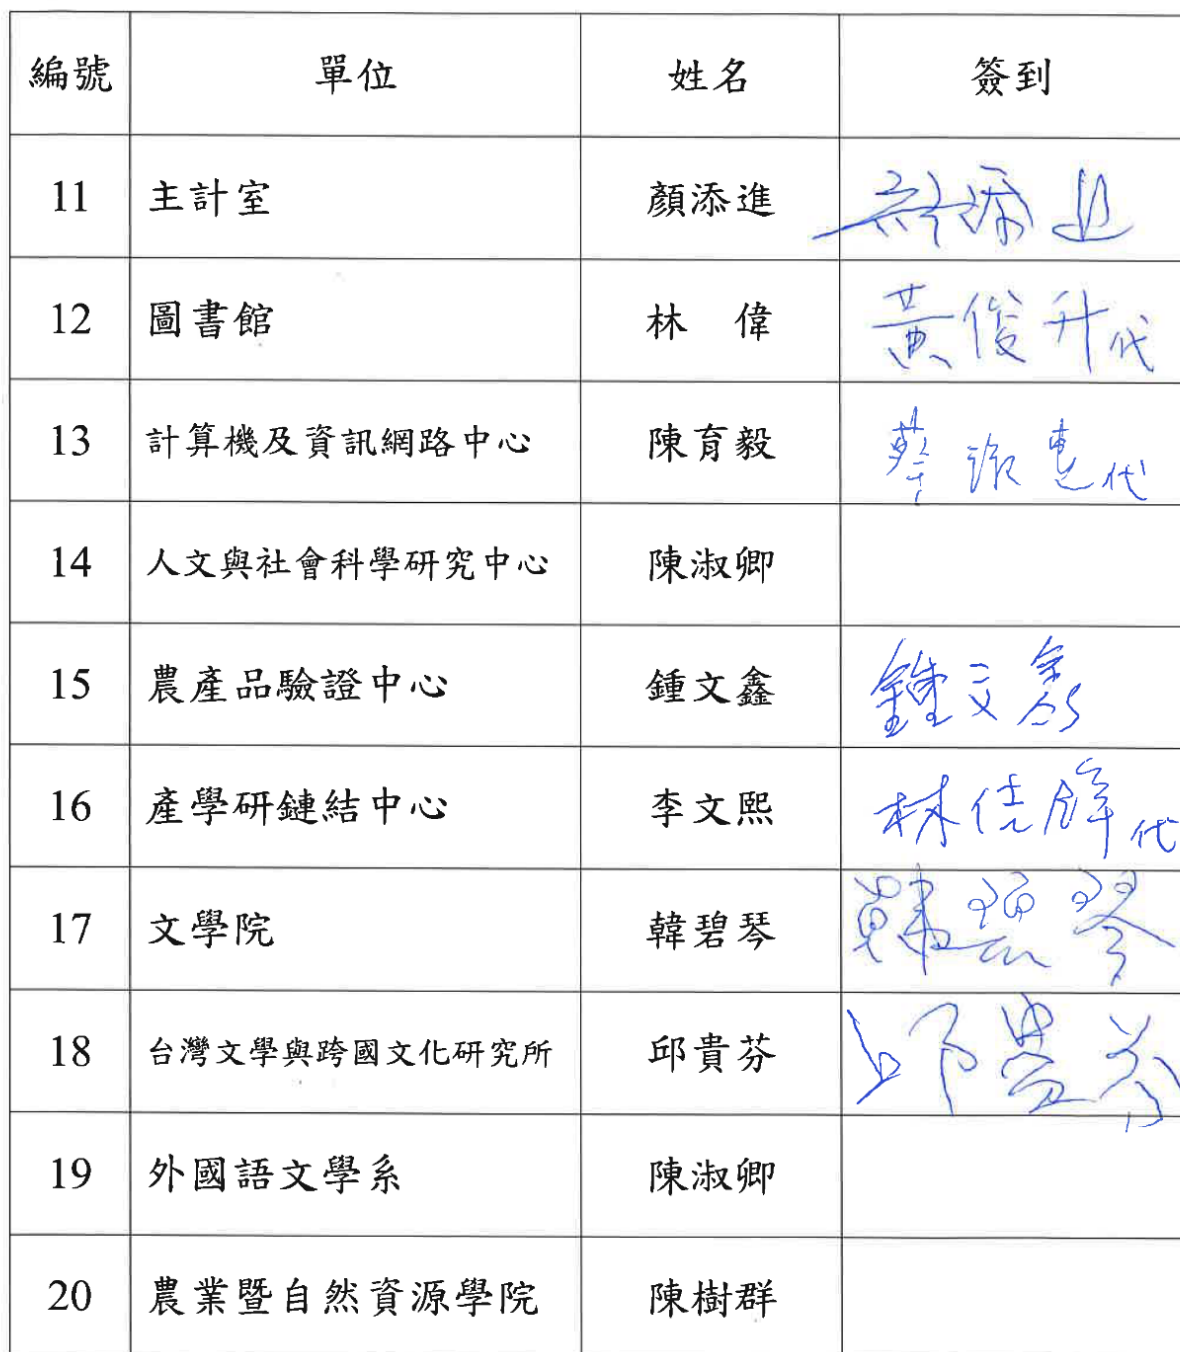 編號 單位 姓名 簽到
11 主計室 顏添進 顏添進
12 圖書館 林 偉 黃俊升代
13 計算機及資訊網路中心 陳育毅 蔡 代
14 人文與社會科學研究中心 陳淑卿
15 農產品驗證中心 鍾文鑫 鍾文鑫
16 產學研鏈結中心 李文熙 林佳 代
17 文學院 韓碧琴 韓碧琴
18 台灣文學與跨國文化研究所 邱貴芬 邱貴芬
19 外國語文學系 陳淑卿
20 農業暨自然資源學院 陳樹群